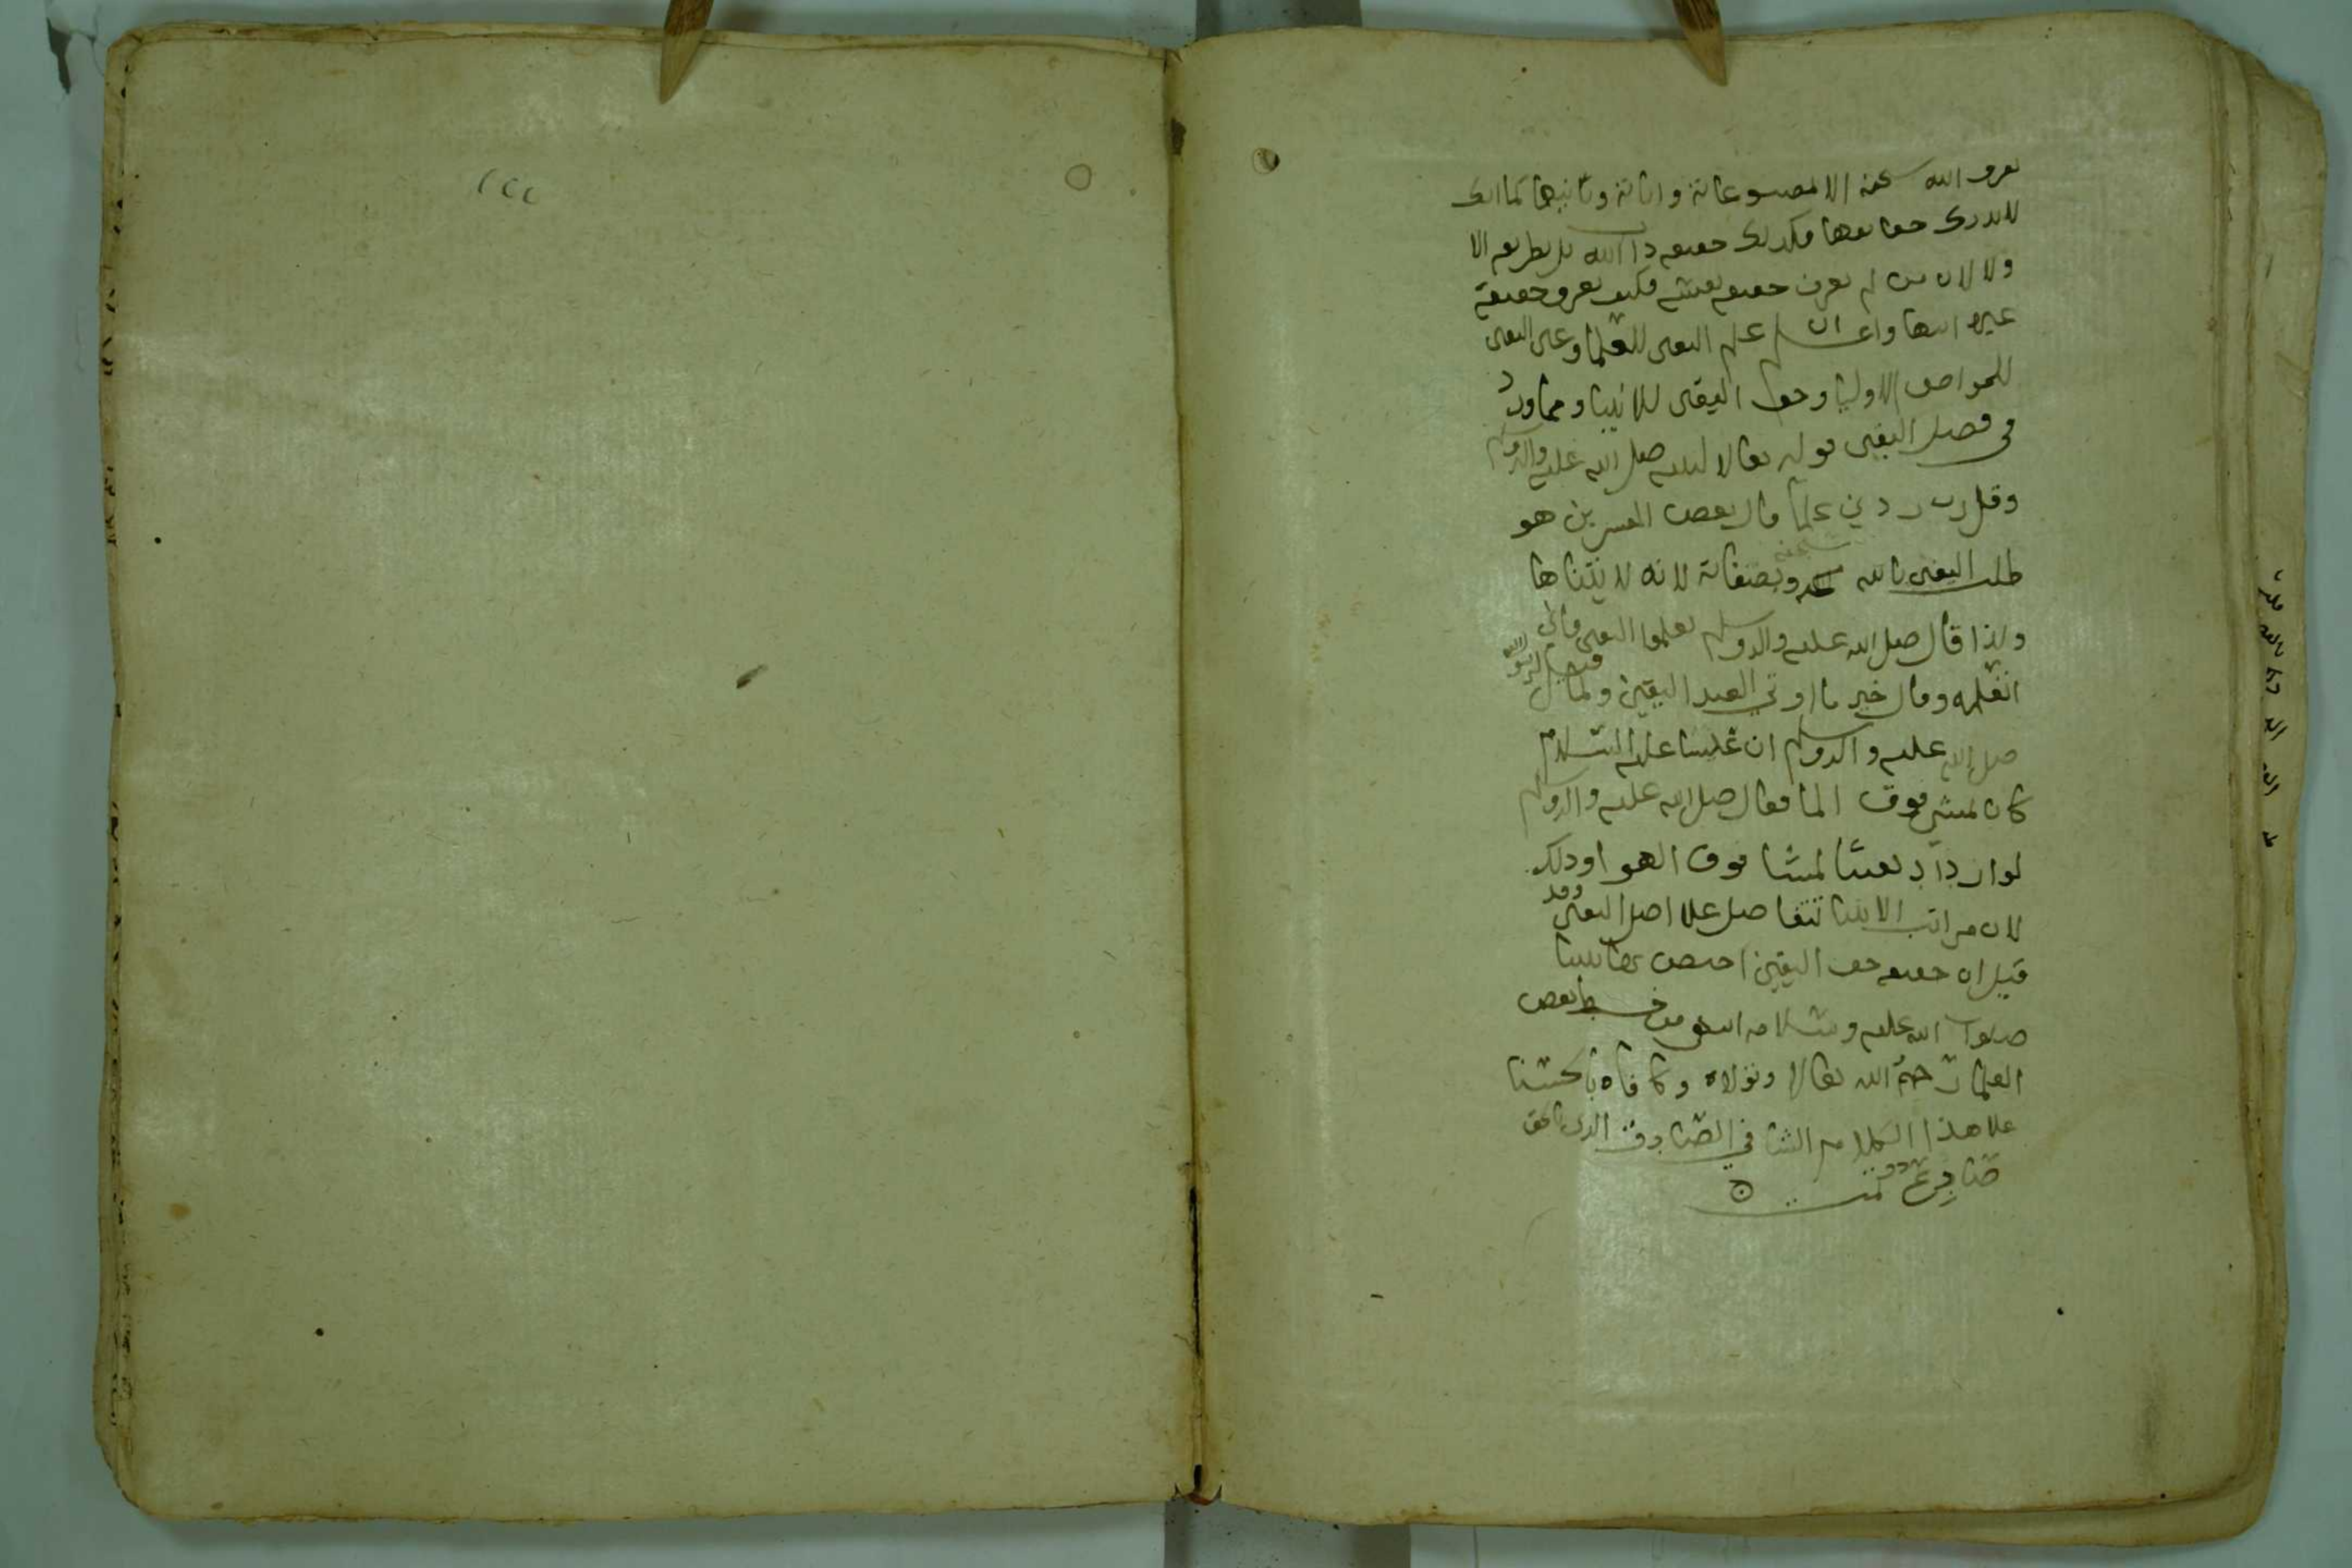 يعرف الله سبحنه الا بمصنوعاته واياته وتاثيرها كما انك
لا تدرك حقايقها فكذلك حقيقه ذات الله بل بطريقه الا
ولا لان من لم يعرف حقيقه نفسه فكيف يعرف حقيقة
غيره انتها واعلم ان علم اليقين للعلما وعين اليقين
للخواص الاوليا وحق اليقين للانبيا ومما ورد
في فضل اليقين قوله تعالا لنبيه صلى الله عليه واله وسلم
وقل رب زدني علما قال بعض المفسرين هو
طلب اليقين بالله سبحنه وبصفاته لانه لا يتناها
ولذا قال صلى الله عليه واله وسلم تعلموا اليقين فاني
اتعلمه وقال خير ما اوتي العبد اليقين ولما قيل لرسول الله
صلى الله عليه واله وسلم ان عيسا عليه السلام
كان يمشي فوق الما فقال صلى الله عليه واله وسلم
لو ازداد يقينا لمشا فوق الهوا وذلك
لان مراتب الانبيا تتفاضل علا اصل اليقين وقد
قيل ان حقيقه حق اليقين اختص بها نبينا
صلوات الله عليه وسلامه انتهى من خط بعض
العلما رحمه الله تعالا وتولاه وكافاه بالحسنا
علا هذا الكلام الشافي الصادق الذي بالحق
صادع تمت
١٢٢